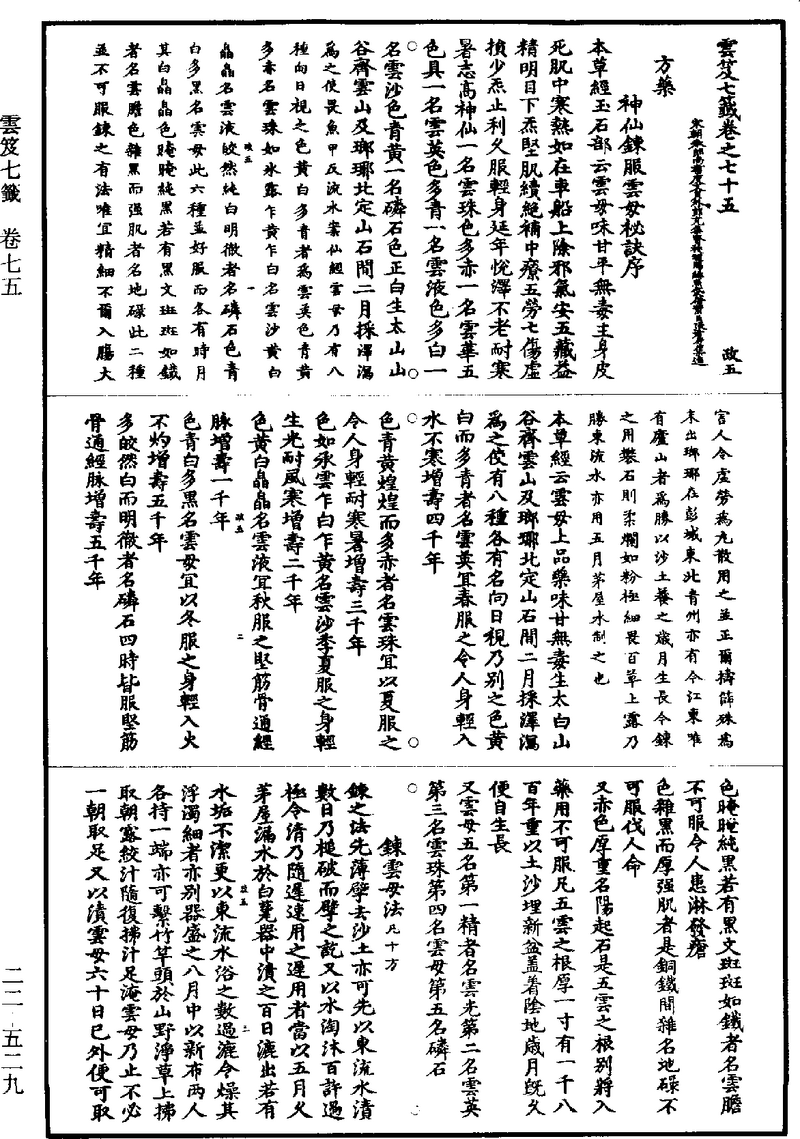 雲笈七籤卷之七十五
政五
方藥
神仙鍊服雲母秘訣序
本草經玉石部云雲母味甘平無毒主身皮
死肌中寒熱如在車船上除邪氣安五藏益
精明目下炁堅肌續絕補中療五勞七傷虛
損少炁止利久服輕身延年悅澤不老耐寒
暑志高神仙一名雲珠色多赤一名雲華五
色具一名雲英色多青一名雲液色多白一
名雲沙色青黃一名磷石色正白生太山山
谷齊雲山及瑯琊北定山石間二月採澤瀉
為之使畏魚甲反流水案仙經雲母乃有八
種向日視之色黃白多青者為雲英色青黃
多赤名雲珠如氷露乍黃乍白名雲沙黃白
皛皛名雲液皎然純白明徹者名磷石色青
白多黑名雲母此六種並好服而各有時月
其白皛皛色腌腌純黑若有黑文斑斑如鐵
者名雲膽色雜黑而强肌者名地碌此二種
並不可服鍊之有法唯宜精細不爾入腸大
害人今虛勞為丸散用之並正爾擣篩殊為
未出瑯琊在彭城東北青州亦有今江東唯
有廬山者為勝以沙土養之歲月生長今鍊
之用礬石則柔爛如粉極細畏百草上露乃
勝東流水亦用五月茅屋水制之也
本草經云雲母上品藥味甘無毒生太白山
谷齊雲山及瑯琊北定山石間二月採澤瀉
為之使有八種各有名向日視乃別之色黃
白而多青者名雲英宜春服之令人身輕入
水不寒增壽四千年
色青黃煌煌而多赤者名雲珠宜以夏服之
令人身輕耐寒暑增壽三千年
色如氷雲乍白乍黃名雲沙季夏服之身輕
生光耐風寒增壽二千年
色黃白皛皛名雲液宜秋服之堅筋骨通經
脉增壽一千年
色青白多黑名雲母宜以冬服之身輕入火
不灼增壽五千年
多皎然白而明徹者名磷石四時皆服堅筋
骨通經脉增壽五千年
色腌腌純黑若有黑文斑斑如鐵者名雲膽
不可服令人患淋發瘡
色雜黑而厚强肌者是銅鐵間雜名地碌不
可服伐人命
又亦色厚重名陽起石是五雲之根別將入
藥用不可服凡五雲之根厚一寸有一千八
百年重以土沙埋新盆盖着陰地歲月旣久
便自生長
又雲母五名第一精者名雲光第二名雲英
第三名雲珠第四名雲母第五名磷石
鍊雲母法凡十方
鍊之法先薄擘去沙土亦可先以東流水漬
數日乃槌破而擘之訖又以水淘沐百許過
極令清乃隨遲速用之遲用者當以五月久
茅屋漏水於白甆器中漬之百日漉出若有
水垢不潔更以東流水浴之數過漉令燥其
浮濁細者亦別器盛之八月中以新布兩人
各持一端亦可繫竹竿頭於山野淨草上拂
取朝露絞汁隨復拂汁足淹雲母乃止不必
一朝取足又以漬雲母六十日已外便可取
雲笈七籤 卷七五
二二—五二九